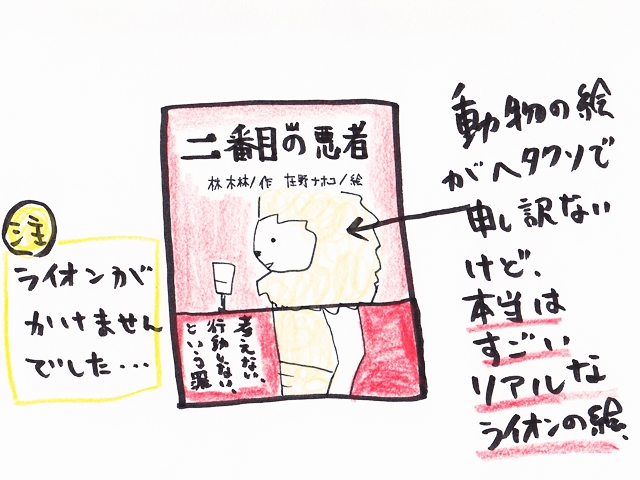 二番目の悪者
林木林/作 庄野ナホコ/絵
考えない、
行動しない、
という罪
注
ライオンが
かけません
でした・・・
動物の絵
がヘタクソで
申し訳ない
けど、
本当は
すごい
リアルな
ライオンの絵、